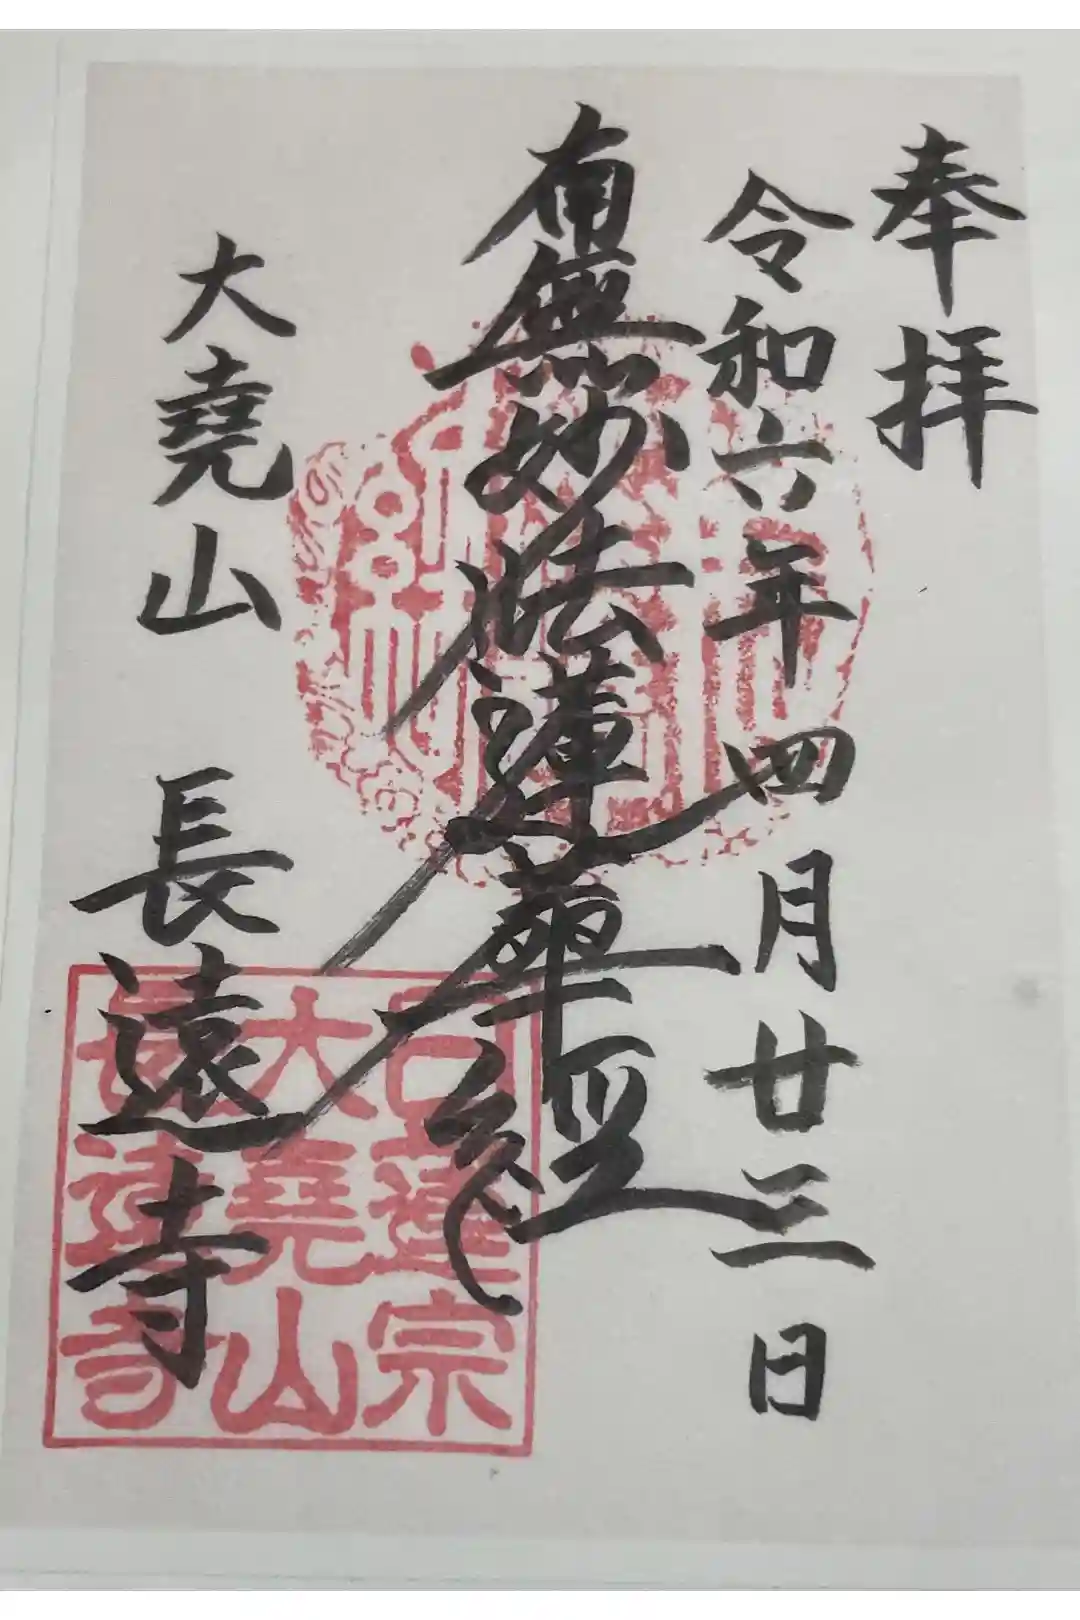 奉拝
令和六年四月廿三日
南無妙法蓮華経
大堯山 長遠寺
日蓮宗
大堯山
長遠寺